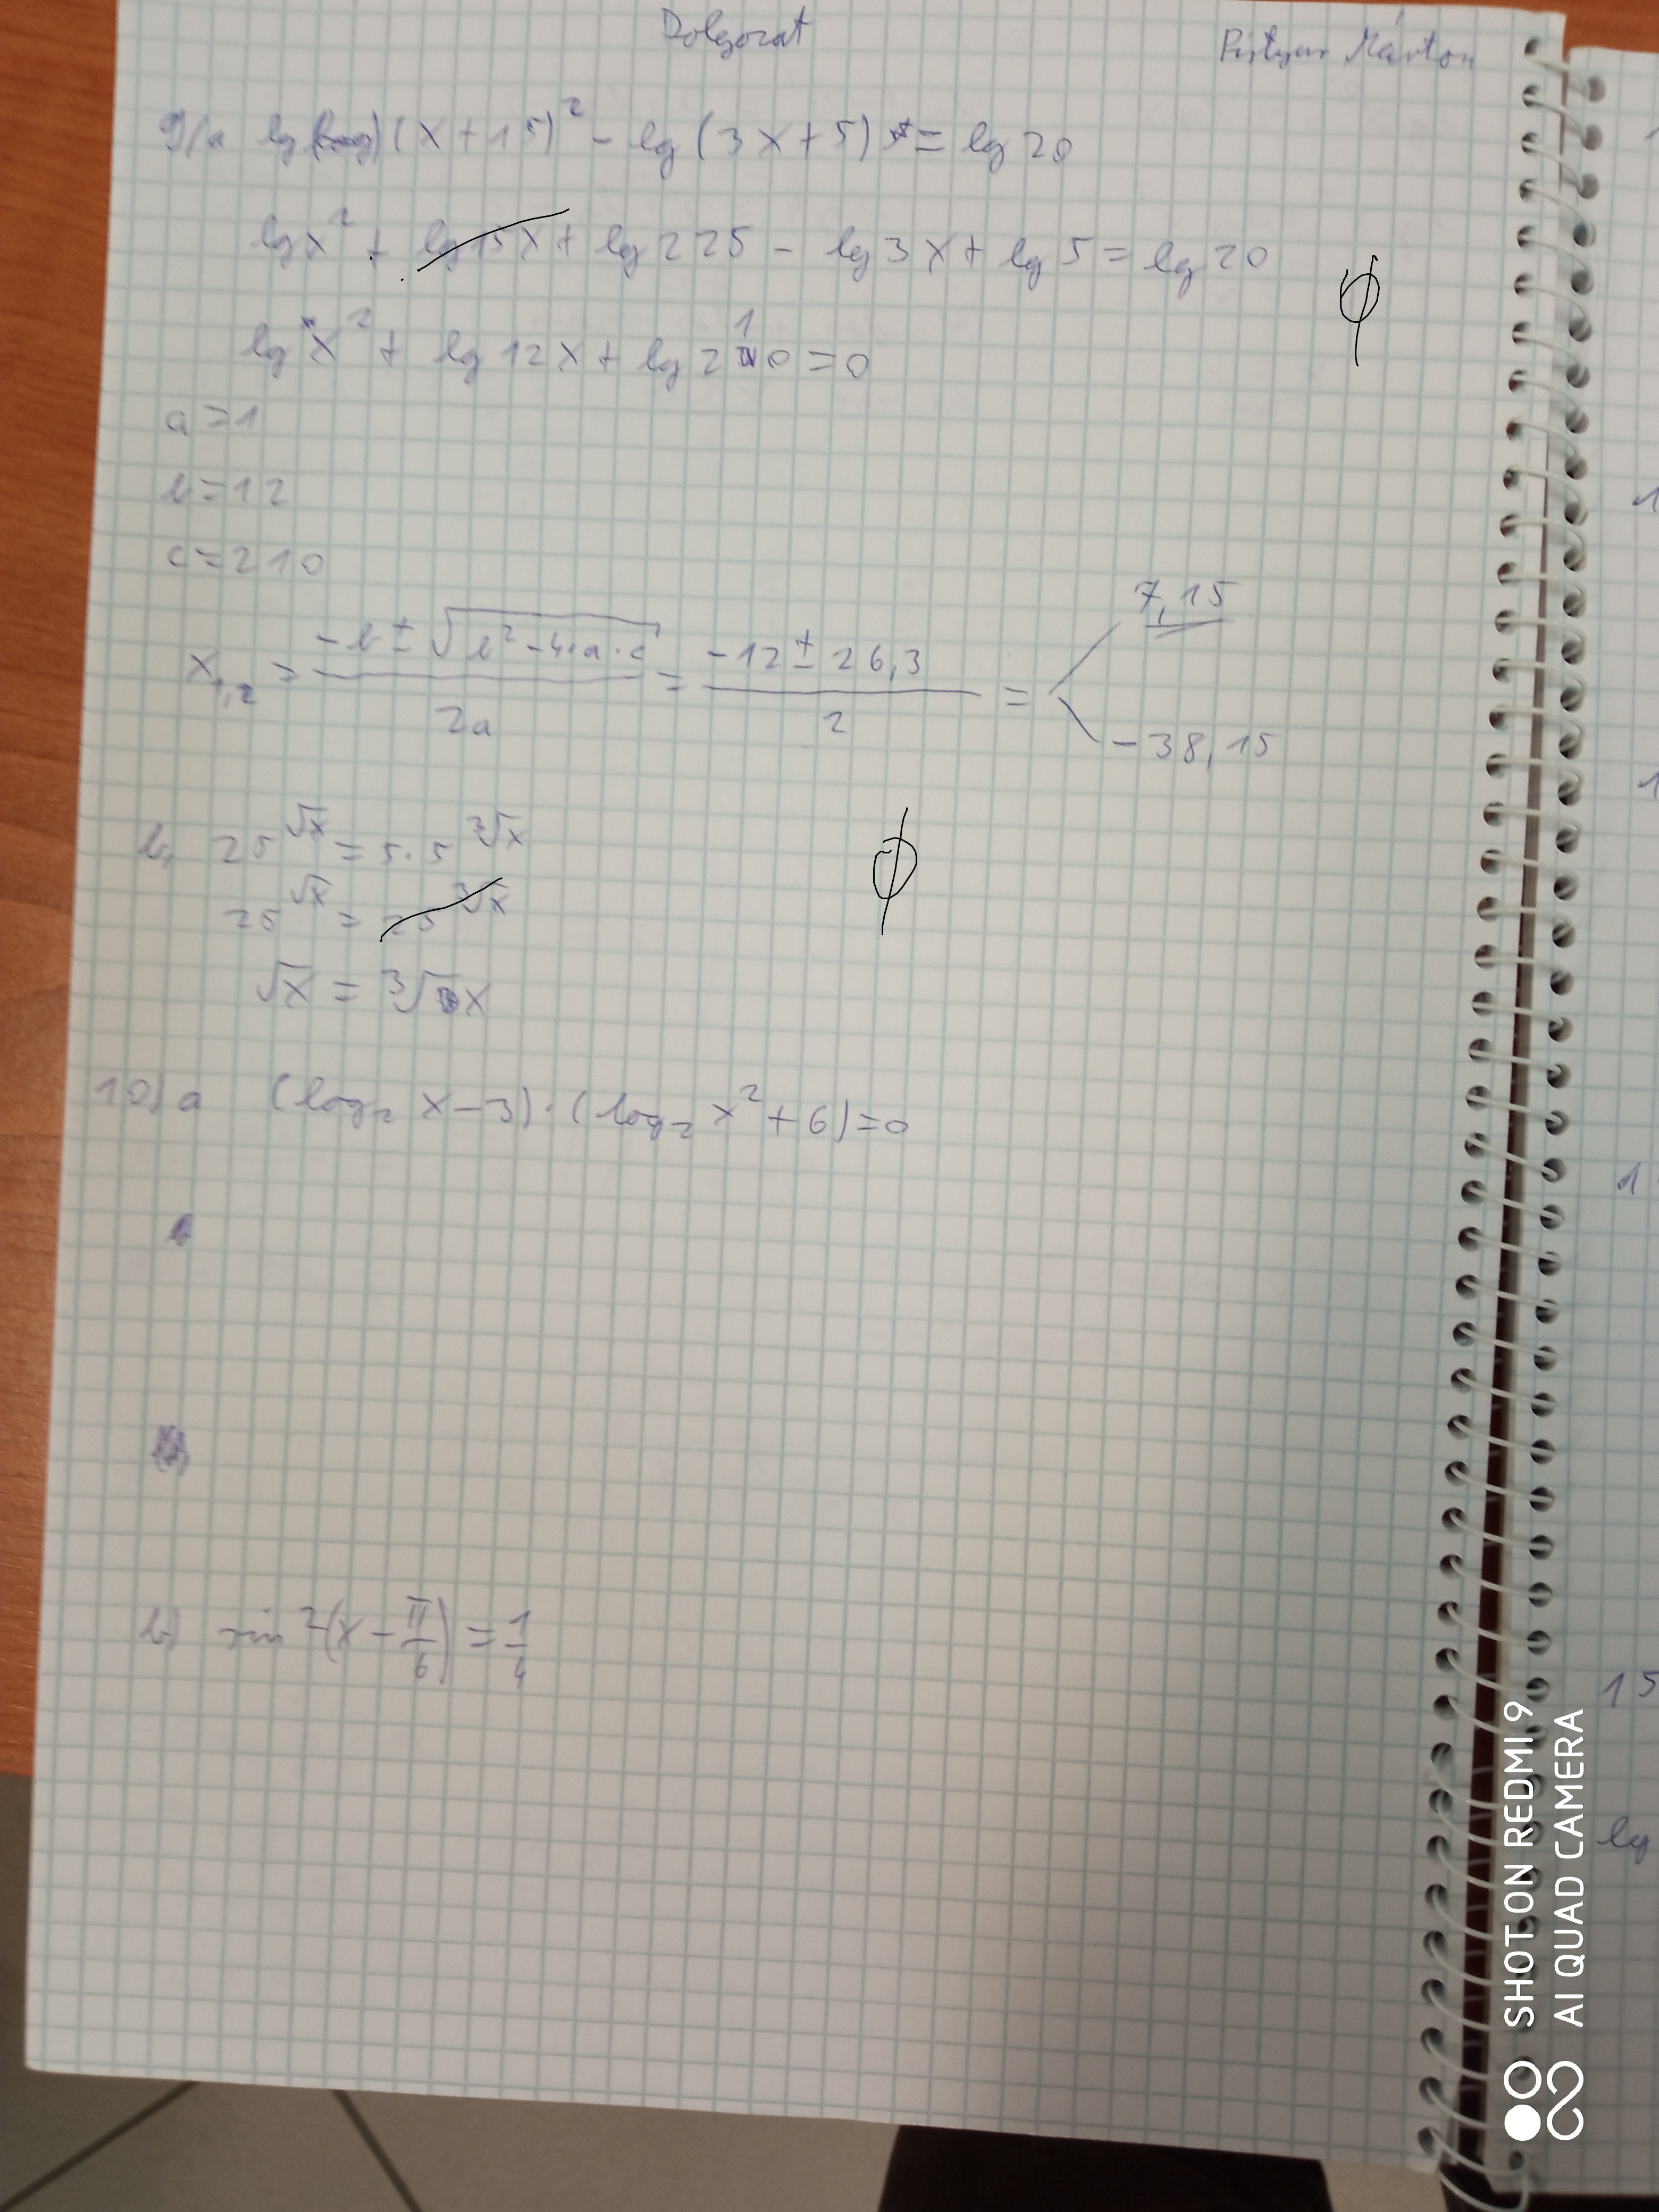 Dolgozat
Márton
9/a lg (x+15)² - lg (3x+5) = lg 20
lg x² + lg 15x + lg 225 - lg 3x + lg 5 = lg 20
lg x² + lg 12x + lg 210 = 0
a = 1
b = 12
c = 210
x₁,₂ = (-b ± √(b² - 4·a·c)) / 2a = (-12 ± 26,3) / 2 = 7,15
-38,15
b, 25^√x = 5·5^∛x
25^√x = 25^∛x
√x = ∛x
10) a (log₂ x - 3)·(log₂ x² + 6) = 0
b) sin²(x - π/6) = 1/4
1
1
1
1
15
lg
SHOT ON REDMI 9
AI QUAD CAMERA